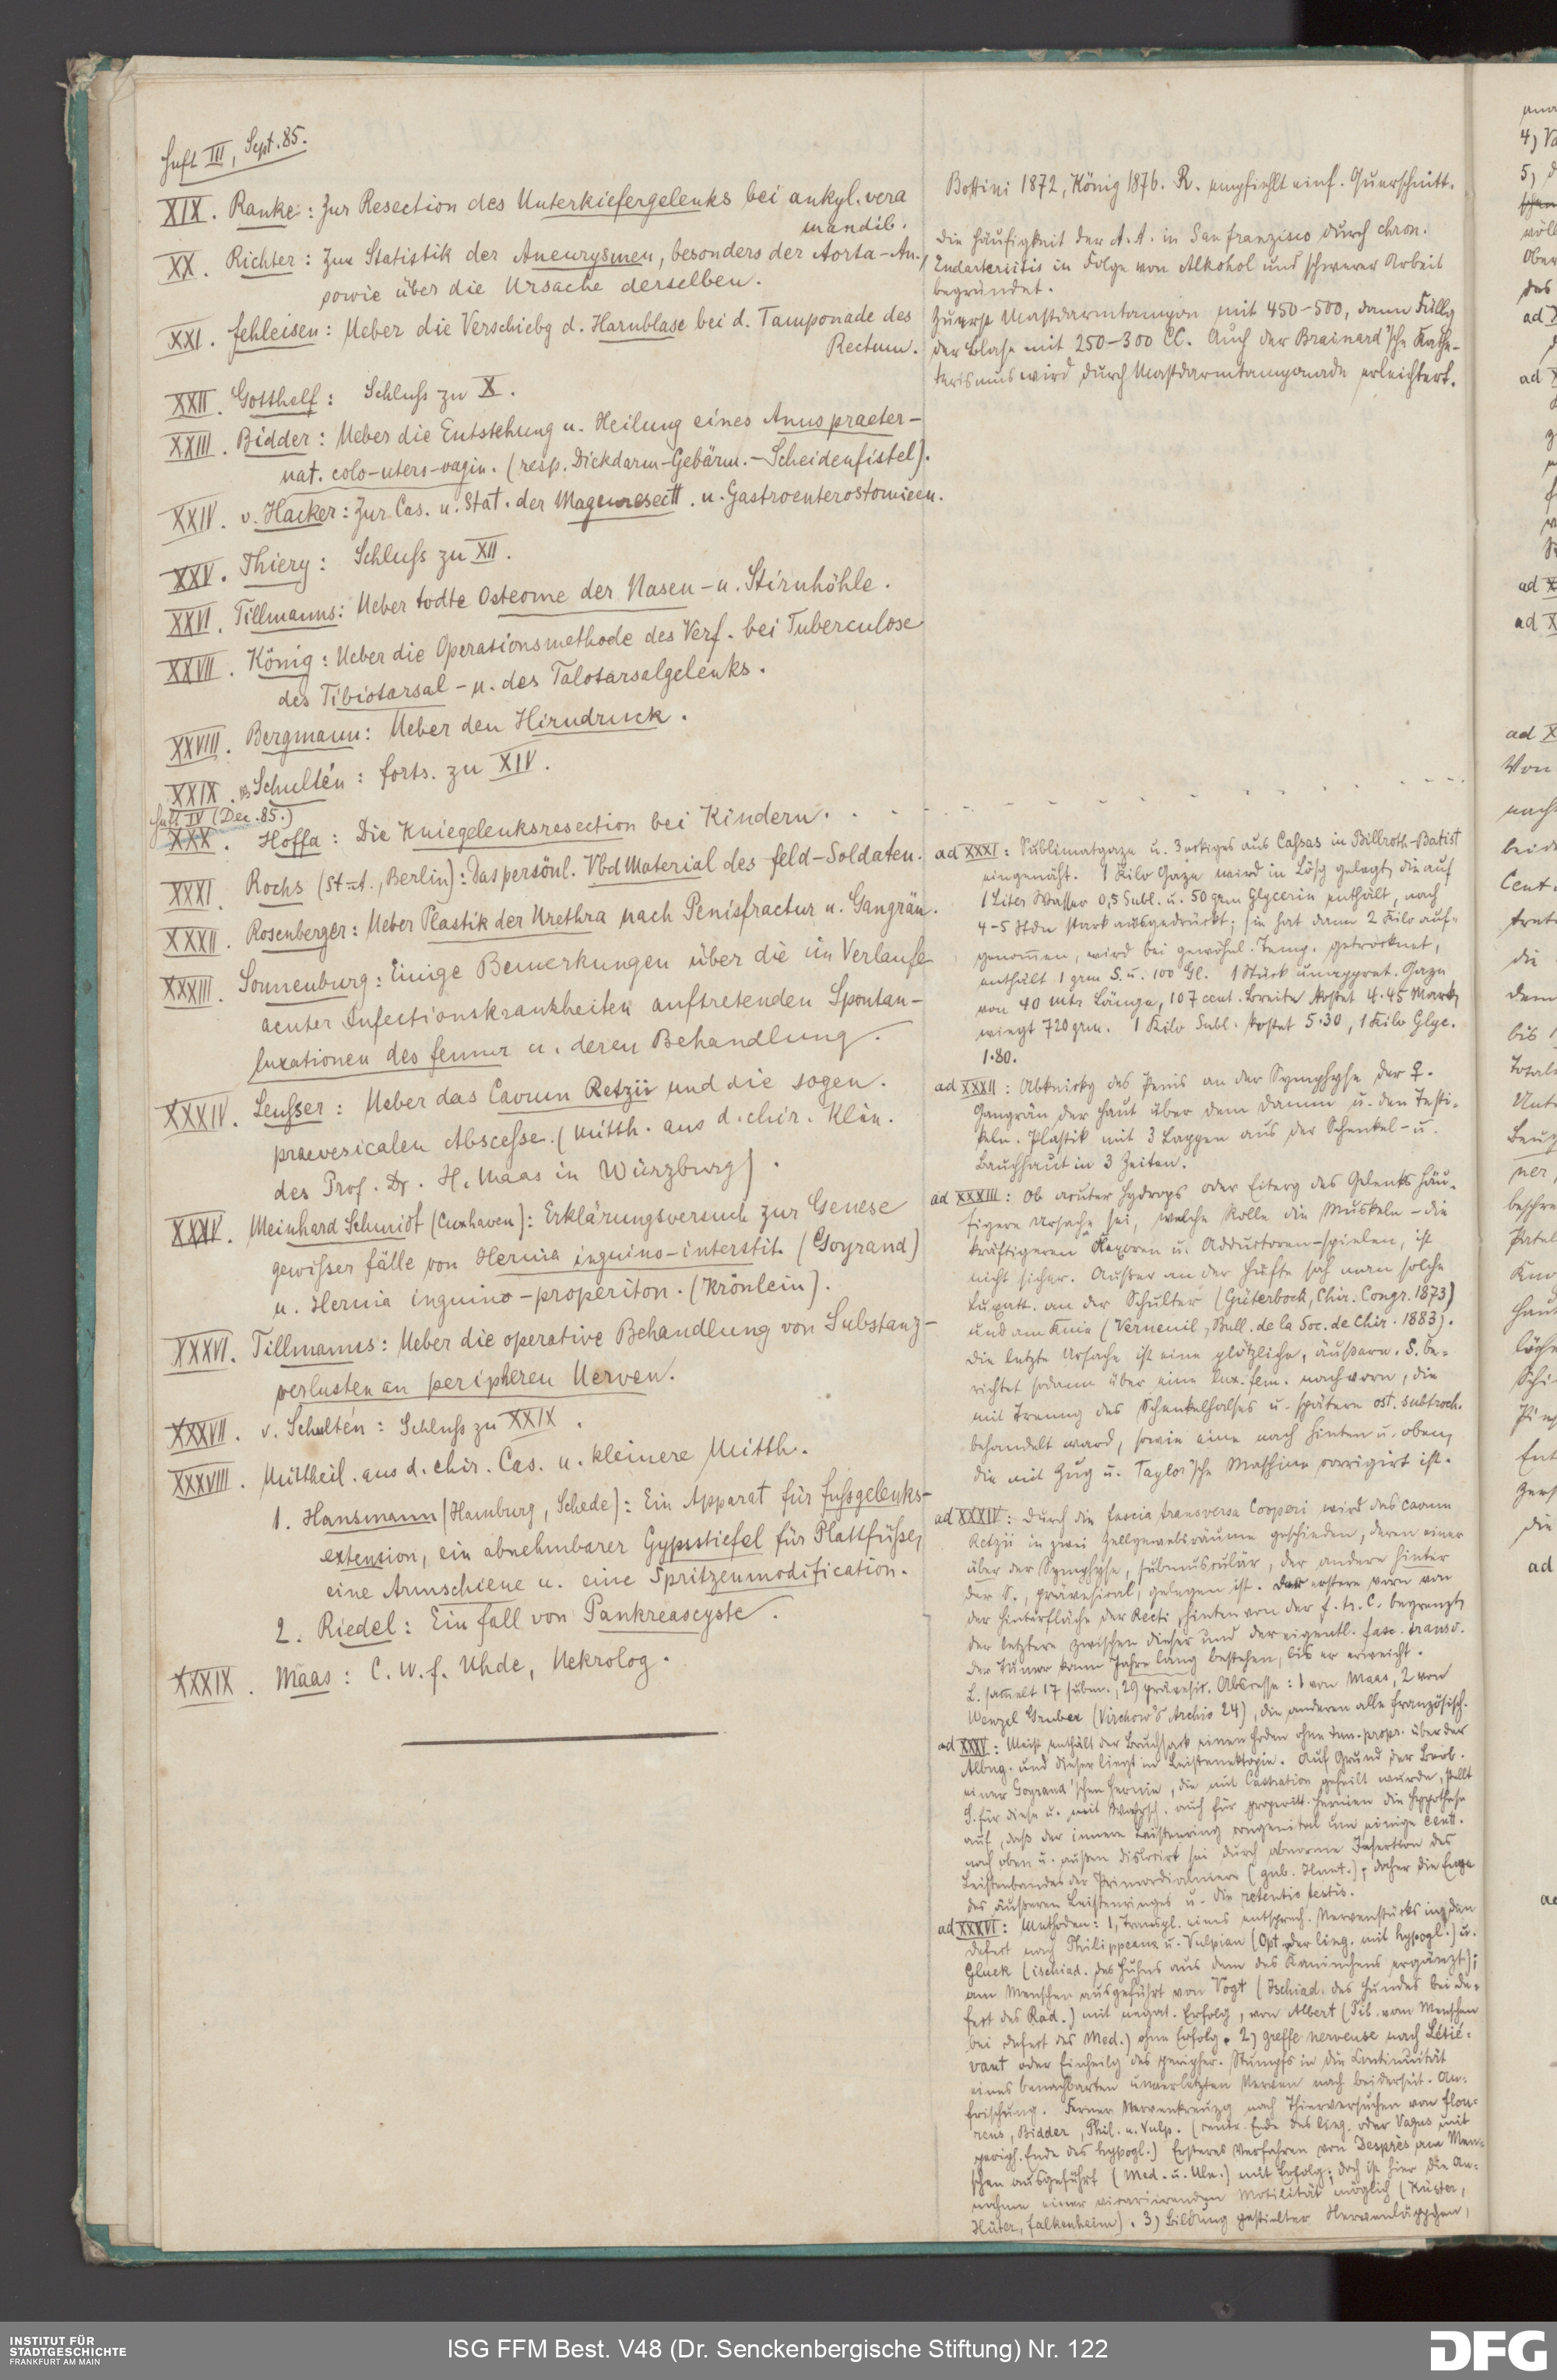 Heft III, Sept. 85.
XIX. Ranke: Zur Resection des Unterkiefergelenks bei ankyl. vera
mandib.
XX. Richter: Zur Statistik der Aneurysmen, besonders der Aorta-An.,
sowie über die Ursache derselben.
XXI. Fehleisen: Ueber die Verschiebg d. Harnblase bei d. Tamponade des
Rectum.
XXII. Gotthelf: Schluß zu X.
XXIII. Bidder: Ueber die Entstehung u. Heilung eines Anus praeter-
nat. colo-utero-vagin. (resp. Dickdarm-Gebärm.-Scheidenfistel).
XXIV. v. Hacker: Zur Cas. u. Stat. der Magenresectt. u. Gastroenterostomieen.
XXV. Thiery: Schluß zu XII.
XXVI. Tillmanns: Ueber todte Osteome der Nasen- u. Stirnhöhle.
XXVII. König: Ueber die Operationsmethode des Verf. bei Tuberculose
des Tibiotarsal- u. des Talotarsalgelenks.
XXVIII. Bergmann: Ueber den Hirndruck.
XXIX. v. Schultén: Forts. zu XIV.
Heft IV (Dec. 85.)
XXX. Hoffa: Die Kniegelenksresection bei Kindern.
XXXI. Rochs (St-A., Berlin): Das persönl. VbdMaterial des Feld-Soldaten.
XXXII. Rosenberger: Ueber Plastik der Urethra nach Penisfractur u. Gangrän.
XXXIII. Sonnenburg: Einige Bemerkungen über die im Verlaufe
acuter Infectionskrankheiten auftretenden Spontan-
luxationen des Femur u. deren Behandlung.
XXXIV. Leußer: Ueber das Cavum Retzii und die sogen.
praevesicalen Abscesse. (Mitth. aus d. chir. Klin.
des Prof. Dr. H. Maas in Würzburg).
XXXV. Meinhard Schmidt (Cuxhaven): Erklärungsversuch zur Genese
gewisser Fälle von Hernia inguino-interstit. (Goyrand)
u. Hernia inguino-properiton. (Krönlein).
XXXVI. Tillmanns: Ueber die operative Behandlung von Substanz-
verlusten an peripheren Nerven.
XXXVII. v. Schultén: Schluß zu XXIX.
XXXVIII. Mittheil. aus d. chir. Cas. u. kleinere Mitth.
1. Hansmann (Hamburg, Schede): Ein Apparat für Fußgelenks-
extension, ein abnehmbarer Gypsstiefel für Plattfüße,
eine Armschiene u. eine Spritzenmodification.
2. Riedel: Ein Fall von Pankreascyste.
XXXIX. Maas: C. W. F. Uhde, Nekrolog.
Bottini 1872, König 1876. R. empfiehlt einf. Querschnitt.
Die Häufigkeit der A. A. in San Franzisco durch chron.
Endarteriitis in Folge von Alkohol und schwerer Arbeit
begründet.
Zuerst Mastdarmtampon mit 450-500, dann Füllg
der Blase mit 250-300 CC. Auch der Brainard'sche Kathe-
terismus wird durch Mastdarmtamponade erleichtert.
ad XXXI: Sublimatgaze u. 3eckiges aus Caßas in Billroth-Batist
eingenäht. 1 Kilo Gaze wird in Lösg gelegt, die auf
1 Liter Wasser 0,5 Subl. u. 50 grm Glycerin enthält, nach
4-5 Stdn stark ausgedrückt; sie hat dann 2 Kilo auf-
genommen, wird bei gewöhnl. Temp. getrocknet,
enthält 1 grm S. u. 100 Gl. 1 Stück unapprt. Gaze
von 40 mtr Länge, 107 cent. Breite kostet 4.45 Mark,
wiegt 720 grm. 1 Kilo Subl. kostet 5.30, 1 Kilo Glyc.
1.80.
ad XXXII: Abknickg des Penis an der Symphyse der ♀.
Gangrän der Haut über dem Damm u. den Testi-
keln. Plastik mit 3 Lappen aus der Schenkel- u.
Bauchhaut in 3 Zeiten.
ad XXXIII: Ob acuter Hydrops oder Eiterg des Gelenks häu-
figere Ursache sei, welche Rolle die Muskeln - die
kräftigeren Flexoren u. Adductoren - spielen, ist
nicht sicher. Außer an der Hüfte sah man solche
Luxatt. an der Schulter (Güterbock, Chir. Congr. 1873)
und am Knie (Verneuil, Bull. de la Soc. de Chir. 1883).
Die letzte Ursache ist eine plötzliche, äußere. S. be-
richtet sodann über eine Lux. fem. nach vorn, die
mit Trenng des Schenkelhalses u. später ost. subtroch.
behandelt ward, sowie eine nach hinten u. oben,
die mit Zug u. Taylor'sche Maschine corrigirt ist.
ad XXXIV: Durch die Fascia transversa Cooperi wird das Cavum
Retzii in zwei Zellgewebsräume geschieden, deren einer
über der Symphyse, submusculär, der andere hinter
der S., prävesical, gelegen ist. Der erstere vorn von
der Hinterfläche der Recti, hinten von der f. tr. C. begrenzt,
der letztere zwischen dieser und der eigentl. fasc. transv.
Der Tumor kann Jahre lang bestehen, bis er erweicht.
L. sammelt 17 subm., 29 prävesic. Abscesse: 1 von Maas, 2 von
Wenzel Gruber (Virchow's Archiv 24), die anderen alle französisch.
ad XXXV: Meist enthält der Bruchsack einen Hoden ohne tun. propr. über der
Albug. und dieser liegt in Leistenektopie. Auf Grund der Beob.
einer Goyrand'schen Hernie, die mit Castration geheilt wurde, stellt
S. für diese u. mit Wahrsch. auch für properitt. Hernien die Hypothese
auf, daß der innere Leistenring congenital um einige Centt.
nach oben u. außen dislocirt sei durch abnorme Insertion des
Leistenbandes der Primordialniere (gub. Hunt.); daher die Enge
des äußeren Leistenringes u. die retentio testis.
ad XXXVI: Methoden: 1, Transpl. eines entsprech. Nervenstücks in den
Defect nach Philippeaux u. Vulpian (Opt. der ling. mit hypogl.) u.
Gluck (ischiad. des Huhns aus dem des Kaninchens ergänzt);
am Menschen ausgeführt von Vogt (Ischiad. des Hundes bei De-
fect des Rad.) mit negat. Erfolg, von Albert (Tib. vom Menschen
bei Defect des Med.) ohne Erfolg. 2) greffe nerveuse nach Létié-
vant oder Einheilg des peripher. Stumpfs in die Continuität
eines benachbarten unverletzten Nerven nach beiderseit. An-
frischung. Ferner Nervenkreuzg nach Thierversuchen von Flou-
rens, Bidder, Phil. u. Vulp. (centr. Ende des ling. oder Vagus mit
periph. Ende des hypogl.) Ersteres Verfahren von Desprès am Men-
schen ausgeführt (Med. u. Uln.) mit Erfolg; doch ist hier die An-
nahme einer vicariirenden Motilität möglich (Küster,
Hüter, Falkenheim). 3) Bildung gestielter Nervenläppchen,
INSTITUT FÜR
STADTGESCHICHTE
FRANKFURT AM MAIN
ISG FFM Best. V48 (Dr. Senckenbergische Stiftung) Nr. 122
DFG